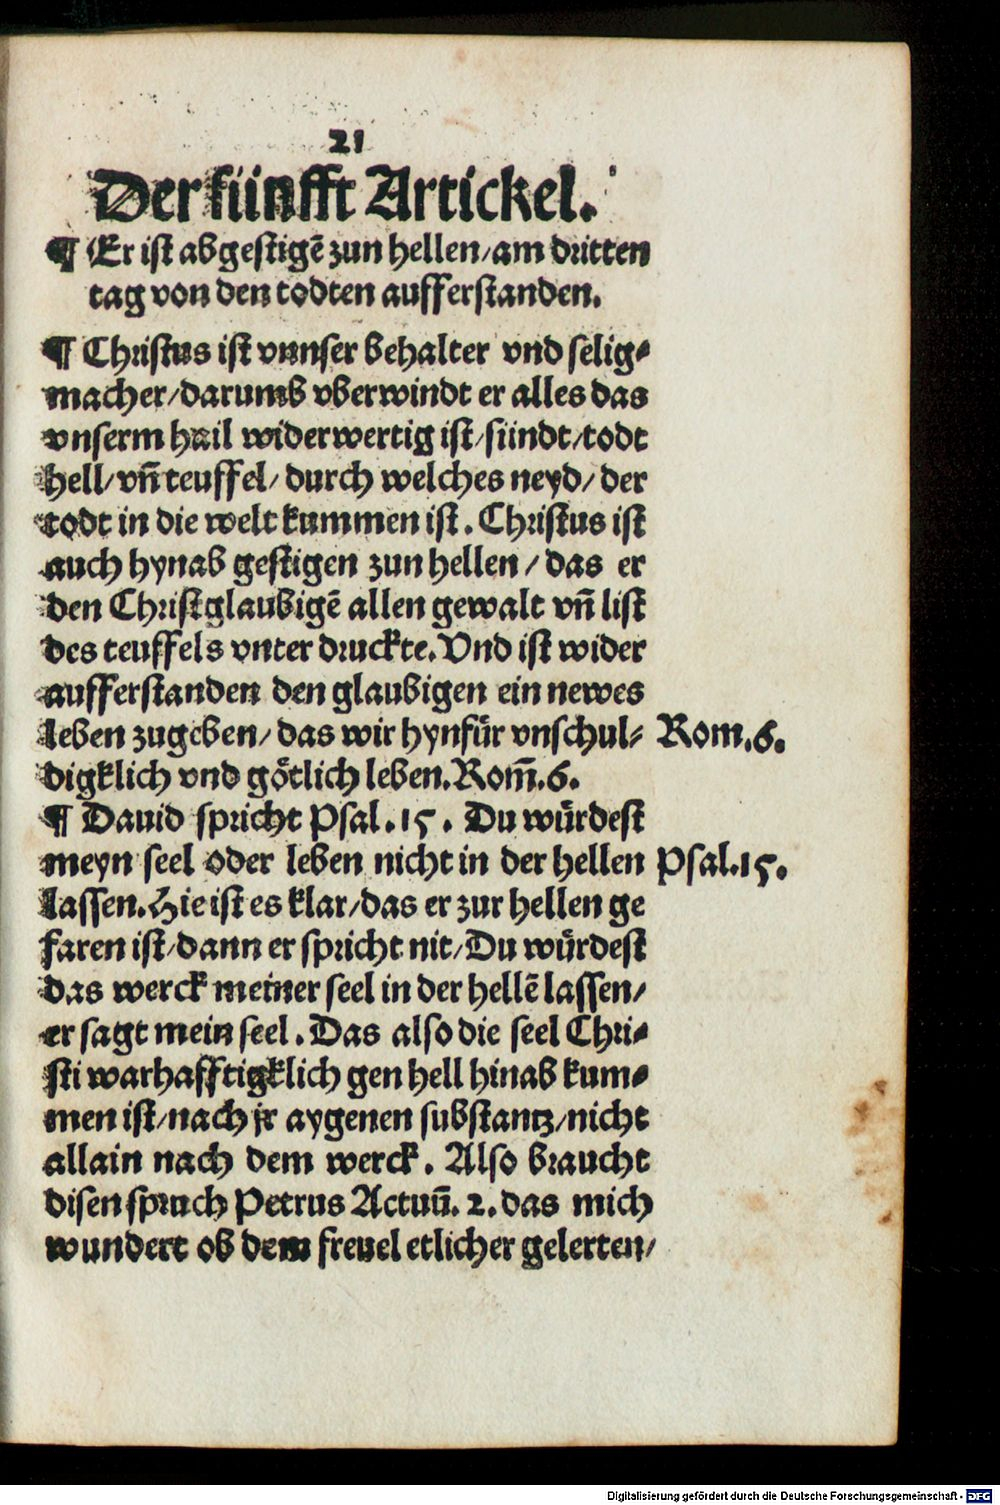 21
Der fünfft Artickel.
¶ Er ist abgestigẽ zun hellen/am dritten
tag von den todten aufferstanden.
¶ Christus ist vnnser behalter vnd selig⸗
macher/darumb vberwindt er alles das
vnserm hail widerwertig ist/sündt/todt
hell/vñ teuffel/durch welches neyd/der
todt in die welt kummen ist. Christus ist
auch hynab gestigen zun hellen/das er
den Christglaubigẽ allen gewalt vñ list
des teuffels vnter druckte. Vnd ist wider
aufferstanden den glaubigen ein newes
leben zugeben/das wir hynfür vnschul⸗ Rom.6.
digklich vnd götlich leben. Rom̃.6.
¶ Dauid spricht Psal.15. Du würdest
meyn seel oder leben nicht in der hellen Psal.15.
lassen. Hie ist es klar/das er zur hellen ge
faren ist/dann er spricht nit/Du würdest
das werck meiner seel in der hellẽ lassen/
er sagt mein seel. Das also die seel Chri⸗
sti warhafftigklich gen hell hinab kum⸗
men ist/nach jr aygenen substantz/nicht
allain nach dem werck. Also braucht
disen spruch Petrus Actuũ.2. das mich
wundert ob dem freuel etlicher gelerten/
Digitalisierung gefördert durch die Deutsche Forschungsgemeinschaft - DFG